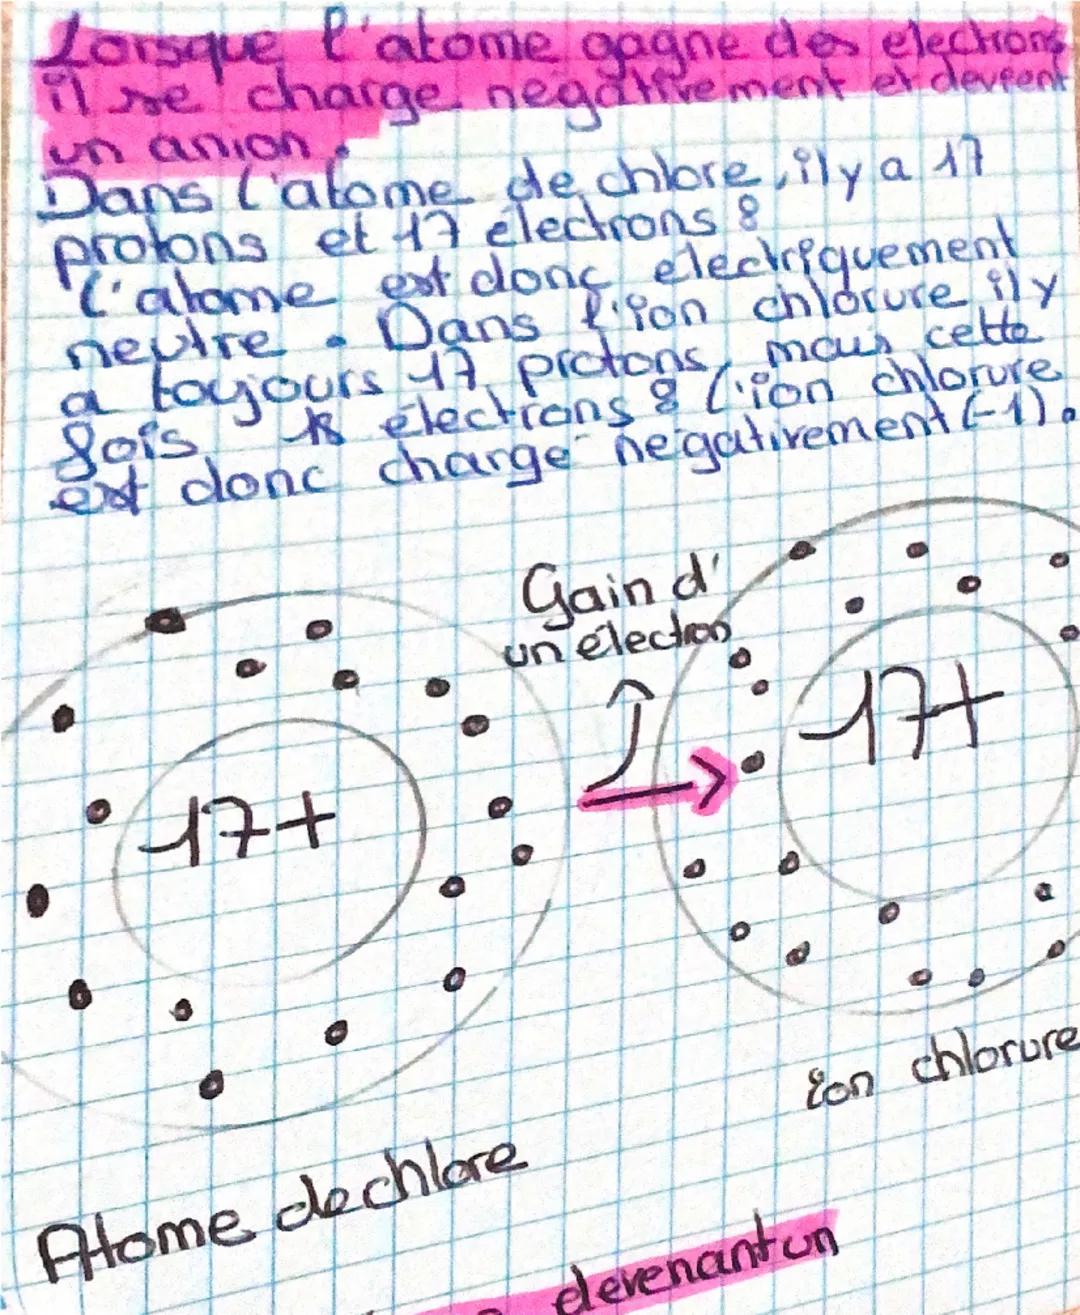 Lorsque l'atome gagne des electrons
il se charge négativement et devient
un anion.
Dans l'atome de chlore, il y a 17
protons et 17 électrons :
l'atome est donc électriquement
neutre. Dans l'ion chlorure il y
a toujours 17 protons, mais cette
fois 18 électrons : l'ion chlorure
est donc chargé négativement (-1).
Gain d'
un électron
17+
17+
ion chlorure
Atome de chlore
devenant un